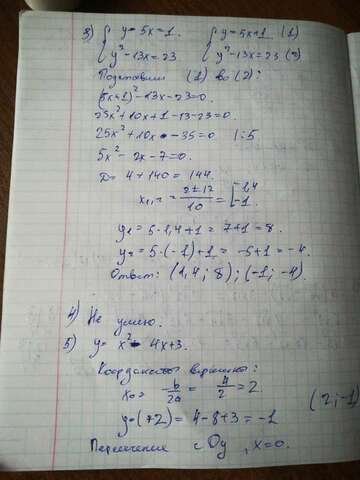 3) { y = 5x = 1. { y = 5x+1 (1)
y² - 13x = 23 y² - 13x = 23 (2)
Подставим (1) во (2):
(5x+1)² - 13x - 23 = 0.
25x² + 10x + 1 - 13 - 23 = 0.
25x² + 10x - 35 = 0 | : 5
5x² - 2x - 7 = 0.
D = 4 + 140 = 144.
x₁,₂ = (2 ± 12)/10 = [ 1,4 -1.
y₁ = 5 · 1,4 + 1 = 7 + 1 = 8.
y₂ = 5 · (-1) + 1 = -5 + 1 = -4.
Ответ: (1,4; 8); (-1; -4).
4) Не умею.
5) y = x² - 4x + 3.
Координаты вершины:
x₀ = -b/2a = 4/2 = 2.
y = (+2) = 4 - 8 + 3 = -1 (2; -1)
Пересечение с Oy, x = 0.